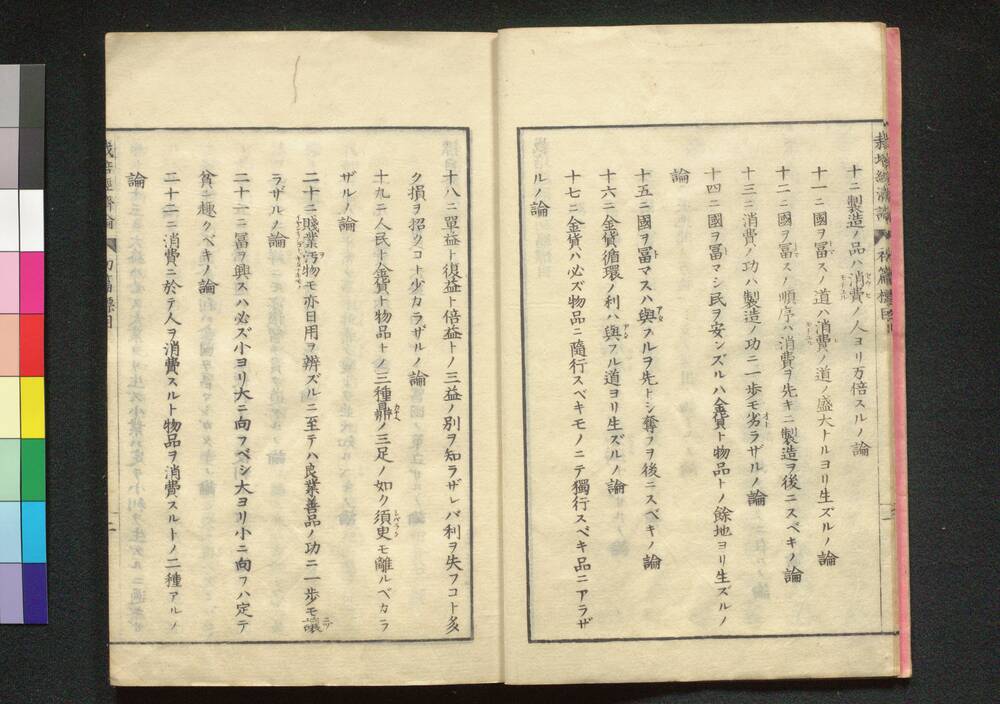 栽培經濟論 初篇標目
十ニ製造ノ品ハ消費ノ人ヨリ万倍スルノ論
十一ニ國ヲ冨スノ道ハ消費ノ道ノ盛大トルヨリ生ズルノ論
十二ニ國ヲ冨スノ順序ハ消費ヲ先キニ製造ヲ後ニスベキノ論
十三ニ消費ノ功ハ製造ノ功ニ一歩モ劣ラザルノ論
十四ニ國ヲ冨マシ民ヲ安ンズルハ金貨ト物品トノ餘地ヨリ生ズルノ
論
十五ニ國ヲ冨マスハ與フルヲ先トシ奪フヲ後ニスベキノ論
十六ニ金貨循環ノ利ハ與フル道ヨリ生ズルノ論
十七ニ金貨ハ必ズ物品ニ隨行スベキモノニテ獨行スベキ品ニアラザ
ルノ論
十八ニ單益ト復益ト倍益トノ三益ノ別ヲ知ラザレバ利ヲ失フコト多
ク損ヲ招クコト少カラザルノ論
十九ニ人民ト金貨ト物品トノ三種鼎ノ三足ノ如ク須臾モ離ルベカラ
ザルノ論
二十ニ賤業汚物モ亦日用ヲ辨ズルニ至テハ良業善品ノ功ニ一歩モ讓
ラザルノ論
二十一ニ冨ヲ興スハ必ズ小ヨリ大ニ向フベシ大ヨリ小ニ向フハ定テ
貧ニ趣クベキノ論
二十二ニ消費ニ於テ人ヲ消費スルト物品ヲ消費スルトノ二種アルノ
論
栽培經濟論 初篇標目 二